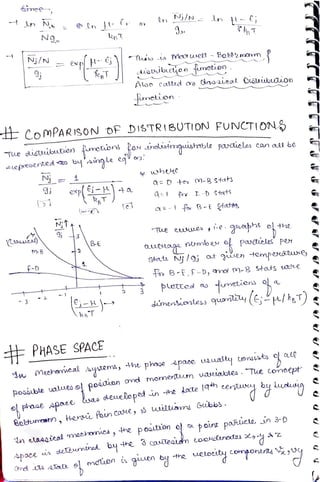 Since,
-1 ln Nj/Ngj = ln μ - εj / kBT or ln Nj/N / gj = ln μ - εj / kBT
→ Nj/N / gj = exp( μ - εj / kBT )
- This is Maxwell - Boltzmann
distribution function.
Also called as classical Distribution
function.
# COMPARISON OF DISTRIBUTION FUNCTIONS
The distribution functions for indistinguishable particles can all be
represented as by single eqn as:
Nj / gj = 1 / exp( εj - μ / kBT ) + a
where
a = 0 for M-B stats
a = 1 for F-D stats
a = -1 for B-E stats
Nj / gj
B-E
M-B
F-D
-3 -2 -1 1 2 3
( εj - μ / kBT ) →
The curves, i.e. graphs of the
average number of particles per
state Nj/gj at given temperature,
for B-E, F-D, and M-B stats were
plotted as functions of a
dimensionless quantity (εj - μ / kBT)
# PHASE SPACE
In mechanical systems, the phase space usually consists of all
possible values of position and momentum variables. The concept
of phase space was developed in the late 19th century by Ludwig
Boltzmann, Henri Poincare, & Williams Gibbs.
In classical mechanics, the position of a point particle in 3-D
space is determined by the 3 cartesian coordinates x, y & z
and its state of motion is given by the velocity components Vx, Vy